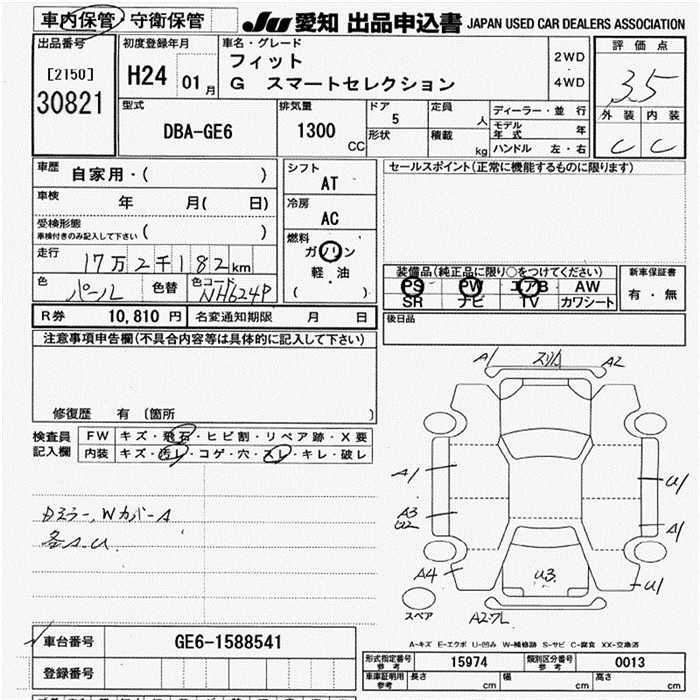 車内保管・守衛保管
JU 愛知 出品申込書 JAPAN USED CAR DEALERS ASSOCIATION
出品番号
[2150]
30821
初度登録年月
H24 01月
車名・グレード
フィット
G スマートセレクション
2WD
4WD
評価点
3.5
外装 内装
C C
型式
DBA-GE6
排気量
1300 CC
ドア
5
形状
定員
人
積載
kg
ディーラー・並行
モデル年式 年
ハンドル 左・右
車歴
自家用・( )
車検
年 月( 日)
受検形態
車検付きのみ記入して下さい ( )
走行
17万2千182km
色
パール
色替
色コード
NH624P
シフト
AT
冷房
AC
燃料
ガソリン
軽・油
( )
セールスポイント(正常に機能するものに限ります)
装備品(純正品に限り○をつけてください)
PS PW エアB AW
SR ナビ TV カワシート
新車保証書
有・無
R券 10,810 円 名変通知期限 月 日
後日品
注意事項申告欄(不具合内容等は具体的に記入して下さい)
修復歴 有 (箇所 )
検査員記入欄
FW キズ・飛石・ヒビ割・リペア跡・X要
内装 キズ・汚レ・コゲ・穴・スレ・キレ・破レ
Dミラー、Wカバ-A
各A.U.
A1
スリA
A2
A1
U1
A3
U2
A1
A4
U3
U1
スペア
A2
車台番号 GE6-1588541
登録番号
A-キズ E-エクボ U-凹み W-補修跡 S-サビ C-腐食 XX-交換済
形式指定番号 参考 15974 類別区分番号 参考 0013
車庫証明用 参考 長さ cm 幅 cm 高さ cm